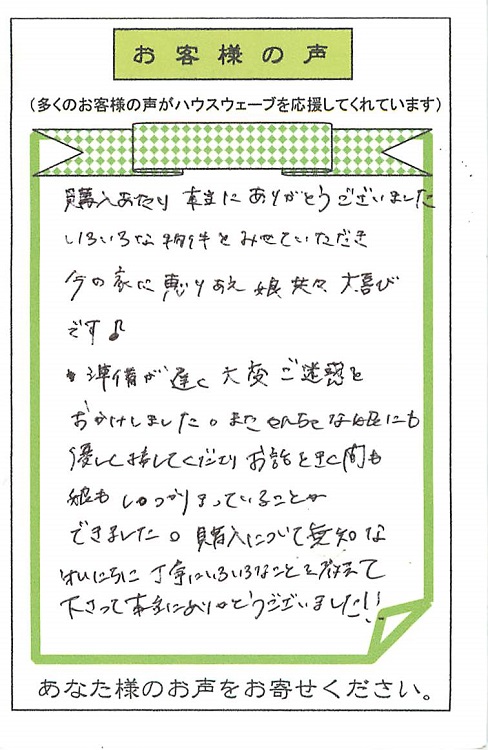 お客様の声
(多くのお客様の声がハウスウェーブを応援してくれています)
購入あたり 本当に ありがとうございました
いろいろな物件をみせていただき
今の家に恵りあえ 娘共々 大喜び
です♪
準備が遅く 大変 ご迷惑を
おかけしました。また やんちゃな娘にも
優しく接してくださり お話を聞く間も
娘も しっかりまっていることが
できました。購入について無知な
わたしたちに 丁寧にいろいろなことを教えて
下さって本当にありがとうございました!!
あなた様のお声をお寄せください。